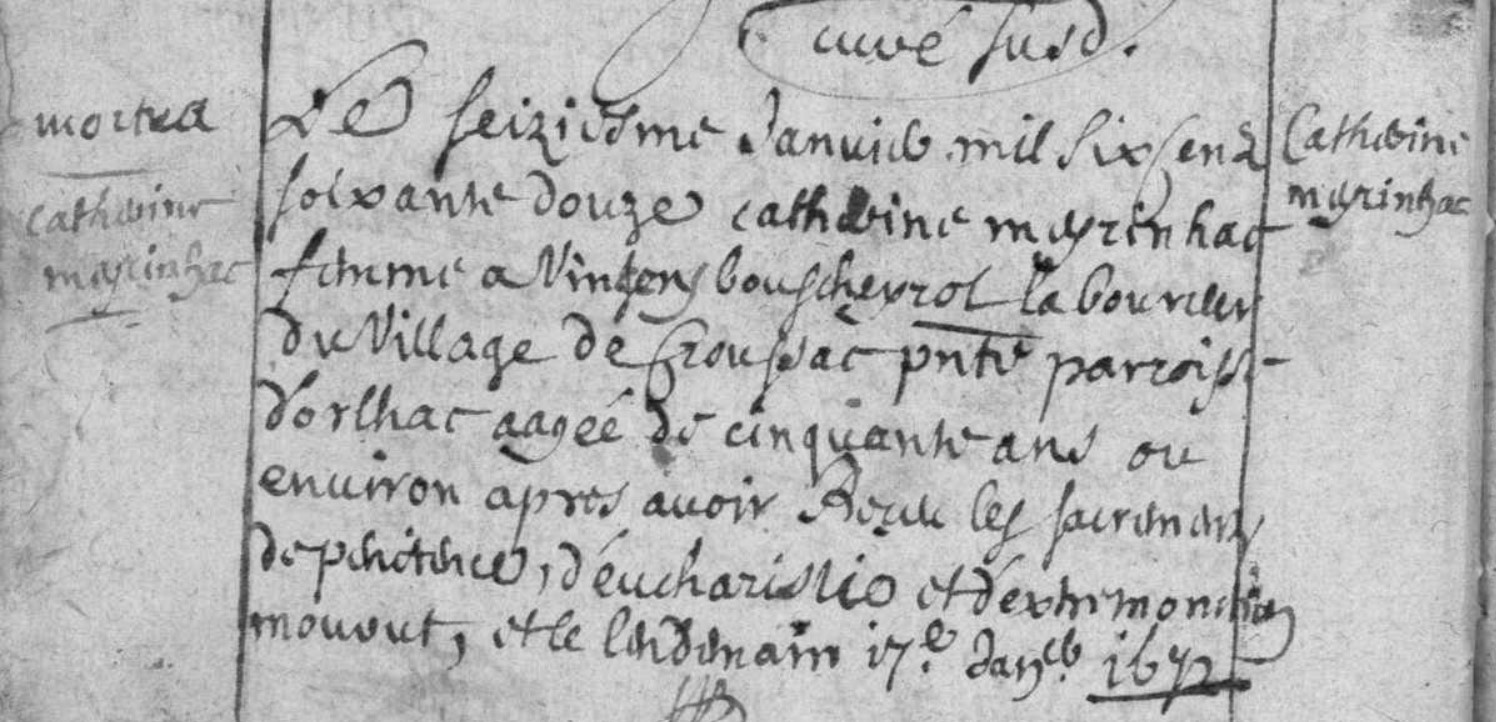 curé susd.
mortua
Catherine
meyrinhac
Le seiziesme Janvier mil six sens
soixante douze catherine meyrinhac
femme a Vinsens bouscheyrol laboureur
du Village de Croussac pnte parroisse
d'orlhac aagée de cinquante ans ou
environ apres avoir Receu les sacremens
de penitence, d'eucharistie et d'extremonction
mourut, et le lendemain 17.e Janer. 1672
Catherine
meyrinhac